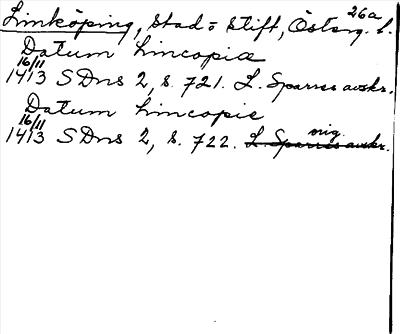 26a
Linköping, Stad o Stift, Österg. l.
Datum Lincopiæ
16/11
1413 SDns 2, s. 721. L. Sparres avskr.
Datum Lincopie
16/11 orig.
1413 SDns 2, s. 722. L. Sparres avskr.